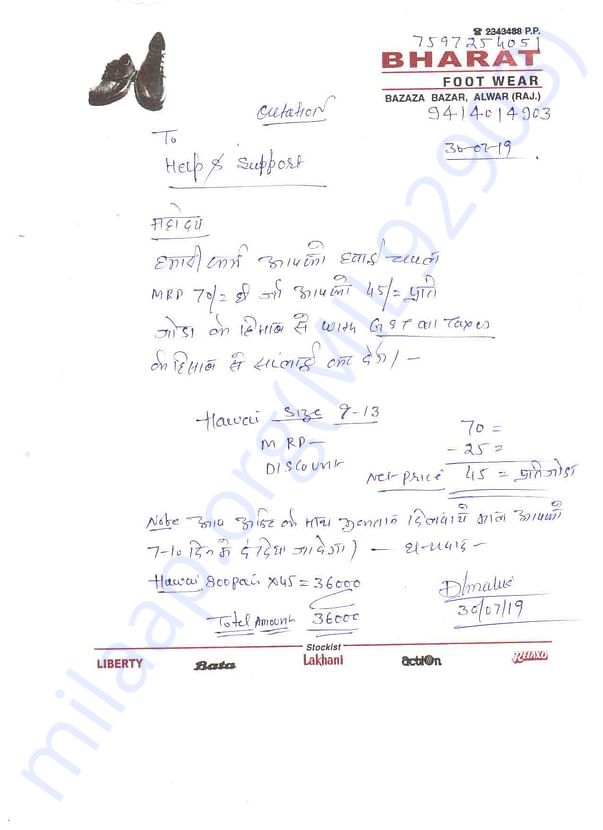 ☎ 2343488 P.P.
7597254051
BHARAT
FOOT WEAR
BAZAZA BAZAR, ALWAR (RAJ.)
9414014903
30-07-19
To
Help & Support
महोदय
हमारी फर्म आपको हवाई चप्पल
MRP 70/= की जो आपको 45/= प्रति
जोडा के हिसाब से with GST all Taxes
के हिसाब से सप्लाई कर देगे/-
Hawai Size 9-13
MRP- 70=
DISCOUNT -25=
Net Price 45= प्रतिजोडा
Note आप आर्डर के साथ भुगतान दिलवाये माल आपको
7-10 दिन मे दे दिया जावेगा) - धन्यवाद -
Hawai 800pair x45=36000
Total Amount 36000
30/07/19
Stockist
LIBERTY Bata Lakhani action RELAXO
milaap.org(MIL92903)